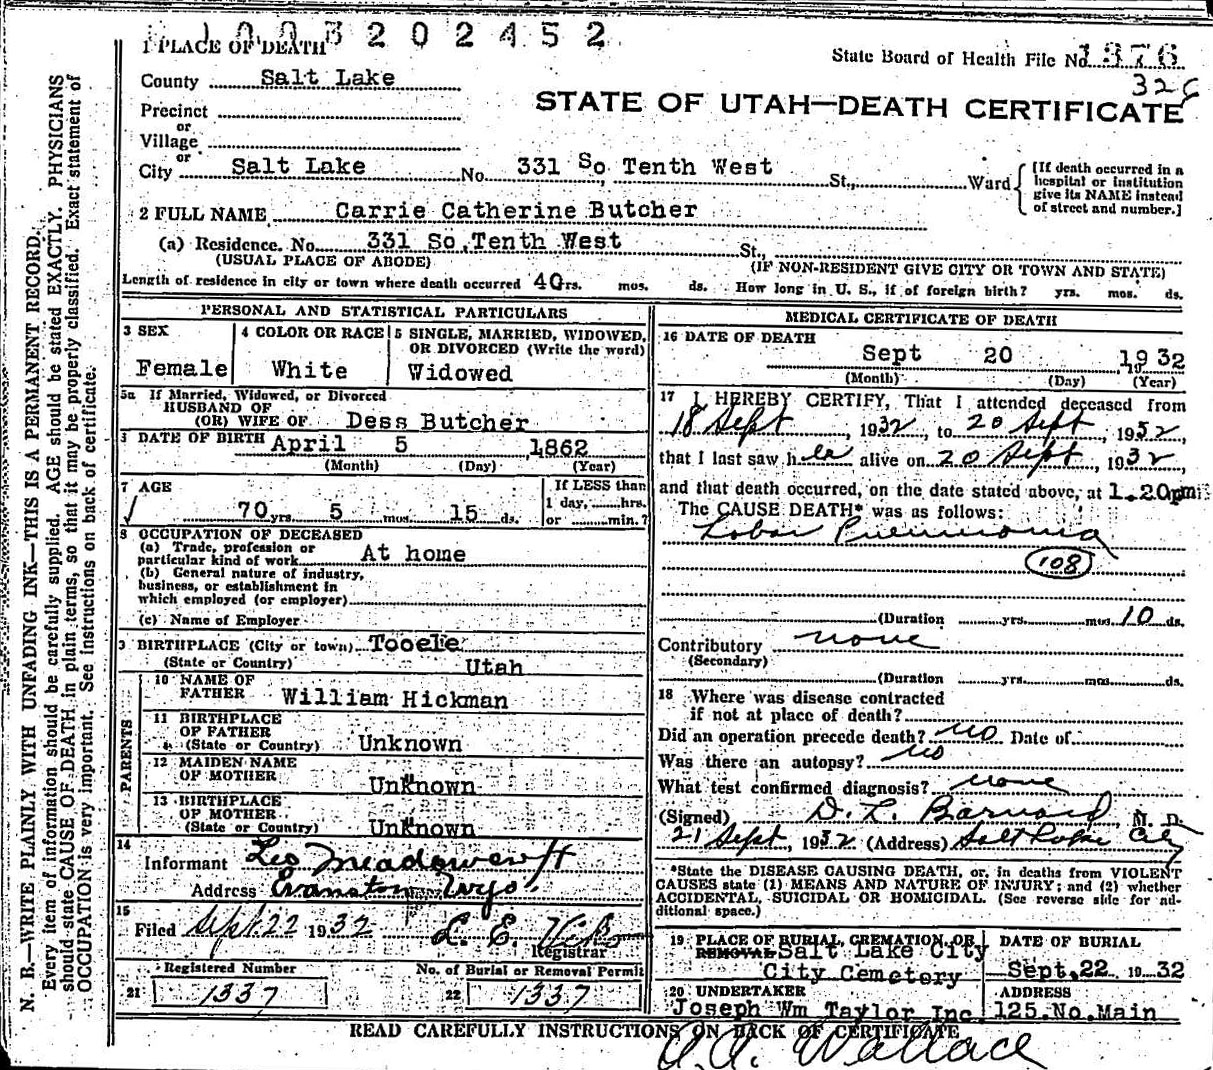 1003202452
1 PLACE OF DEATH
State Board of Health File No. 1376
326
County Salt Lake
STATE OF UTAH—DEATH CERTIFICATE
Precinct
or
Village
or
City Salt Lake No. 331 So Tenth West St., Ward
[If death occurred in a hospital or institution give its NAME instead of street and number.]
2 FULL NAME Carrie Catherine Butcher
(a) Residence. No. 331 So. Tenth West St.,
(USUAL PLACE OF ABODE) (IF NON-RESIDENT GIVE CITY OR TOWN AND STATE)
Length of residence in city or town where death occurred 40 yrs. mos. ds. How long in U. S., if of foreign birth? yrs. mos. ds.
PERSONAL AND STATISTICAL PARTICULARS
3 SEX
Female
4 COLOR OR RACE
White
5 SINGLE, MARRIED, WIDOWED, OR DIVORCED (Write the word)
Widowed
5a If Married, Widowed, or Divorced
HUSBAND OF
(OR) WIFE OF Dess Butcher
DATE OF BIRTH April 5 1862
(Month) (Day) (Year)
7 AGE
70 yrs. 5 mos. 15 ds.
If LESS than
1 day, hrs.
or min.?
8 OCCUPATION OF DECEASED
(a) Trade, profession or
particular kind of work At home
(b) General nature of industry,
business, or establishment in
which employed (or employer)
(c) Name of Employer
9 BIRTHPLACE (City or town) Tooele
(State or Country) Utah
PARENTS
10 NAME OF
FATHER William Hickman
11 BIRTHPLACE
OF FATHER
(State or Country) Unknown
12 MAIDEN NAME
OF MOTHER Unknown
13 BIRTHPLACE
OF MOTHER
(State or Country) Unknown
14
Informant Leo Meadowcroft
Address Evanston Wyo.
15
Filed Sept. 22 1932 L. E.
Registrar
Registered Number No. of Burial or Removal Permit
21 1337 22 1337
MEDICAL CERTIFICATE OF DEATH
16 DATE OF DEATH
Sept 20 1932
(Month) (Day) (Year)
17 I HEREBY CERTIFY, That I attended deceased from
18 Sept, 1932, to 20 Sept, 1932,
that I last saw her alive on 20 Sept, 1932,
and that death occurred, on the date stated above, at 1.20pm
The CAUSE DEATH* was as follows:
Lobar Pneumonia
108
(Duration yrs. mos. 10 ds.
Contributory none
(Secondary)
(Duration yrs. mos. ds.
18 Where was disease contracted
if not at place of death?
Did an operation precede death? no Date of
Was there an autopsy? no
What test confirmed diagnosis? none
(Signed) D. L. Barnard, M. D.
21 Sept, 1932 (Address) Salt Lake City
*State the DISEASE CAUSING DEATH, or, in deaths from VIOLENT
CAUSES state (1) MEANS AND NATURE OF INJURY; and (2) whether
ACCIDENTAL, SUICIDAL OR HOMICIDAL. (See reverse side for ad-
ditional space.)
19 PLACE OF BURIAL, CREMATION, OR
REMOVAL Salt Lake City
City Cemetery
DATE OF BURIAL
Sept. 22 1932
20 UNDERTAKER
Joseph Wm Taylor Inc.
ADDRESS
125. No. Main
READ CAREFULLY INSTRUCTIONS ON BACK OF CERTIFICATE
Wallace
N. B.—WRITE PLAINLY WITH UNFADING INK—THIS IS A PERMANENT RECORD.
Every item of information should be carefully supplied. AGE should be stated EXACTLY. PHYSICIANS
should state CAUSE OF DEATH in plain terms, so that it may be properly classified. Exact statement of
OCCUPATION is very important. See Instructions on back of certificate.